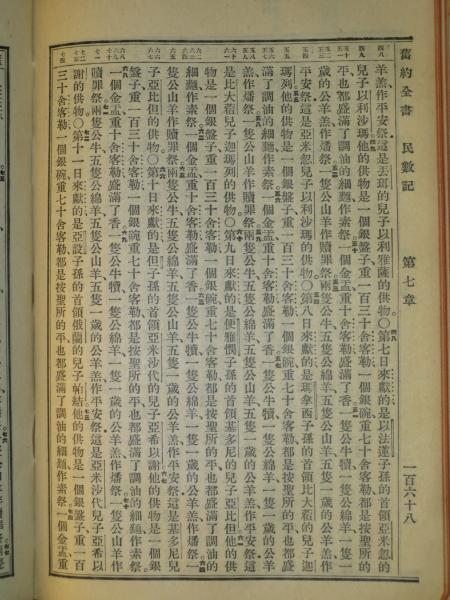 舊約全書 民數記 第七章 一百六十八
羔羊作平安祭這是丟珥的兒子以利雅薩的供物○第七日來獻的是以法蓮子孫的首領亞米忽的
兒子以利沙瑪他的供物是一個銀盤子重一百三十舍客勒一個銀碗重七十舍客勒都是按聖所的
平也都盛滿了調油的細麵作素祭一個金盂重十舍客勒盛滿了香一隻公牛犢一隻公綿羊一隻一
歲的公羊羔作燔祭一隻公山羊作贖罪祭兩隻公牛五隻公綿羊五隻公山羊五隻一歲的公羊羔作
平安祭這是亞米忽兒子以利沙瑪的供物○第八日來獻的是瑪拿西子孫的首領比大蓿的兒子迦
瑪列他的供物是一個銀盤子重一百三十舍客勒一個銀碗重七十舍客勒都是按聖所的平也都盛
滿了調油的細麵作素祭一個金盂重十舍客勒盛滿了香一隻公牛犢一隻公綿羊一隻一歲的公羊
羔作燔祭一隻公山羊作贖罪祭兩隻公牛五隻公綿羊五隻公山羊五隻一歲的公羊羔作平安祭這
是比大蓿兒子迦瑪列的供物○第九日來獻的是便雅憫子孫的首領基多尼的兒子亞比但他的供
物是一個銀盤子重一百三十舍客勒一個銀碗重七十舍客勒都是按聖所的平也都盛滿了調油的
細麵作素祭一個金盂重十舍客勒盛滿了香一隻公牛犢一隻公綿羊一隻一歲的公羊羔作燔祭一
隻公山羊作贖罪祭兩隻公牛五隻公綿羊五隻公山羊五隻一歲的公羊羔作平安祭這是基多尼兒
子亞比但的供物○第十日來獻的是但子孫的首領亞米沙代的兒子亞希以謝他的供物是一個銀
盤子重一百三十舍客勒一個銀碗重七十舍客勒都是按聖所的平也都盛滿了調油的細麵作素祭
一個金盂重十舍客勒盛滿了香一隻公牛犢一隻公綿羊一隻一歲的公羊羔作燔祭一隻公山羊作
贖罪祭兩隻公牛五隻公綿羊五隻公山羊五隻一歲的公羊羔作平安祭這是亞米沙代兒子亞希以
謝的供物○第十一日來獻的是亞設子孫的首領俄蘭的兒子帕結他的供物是一個銀盤子重一百
三十舍客勒一個銀碗重七十舍客勒都是按聖所的平也都盛滿了調油的細麵作素祭一個金盂重